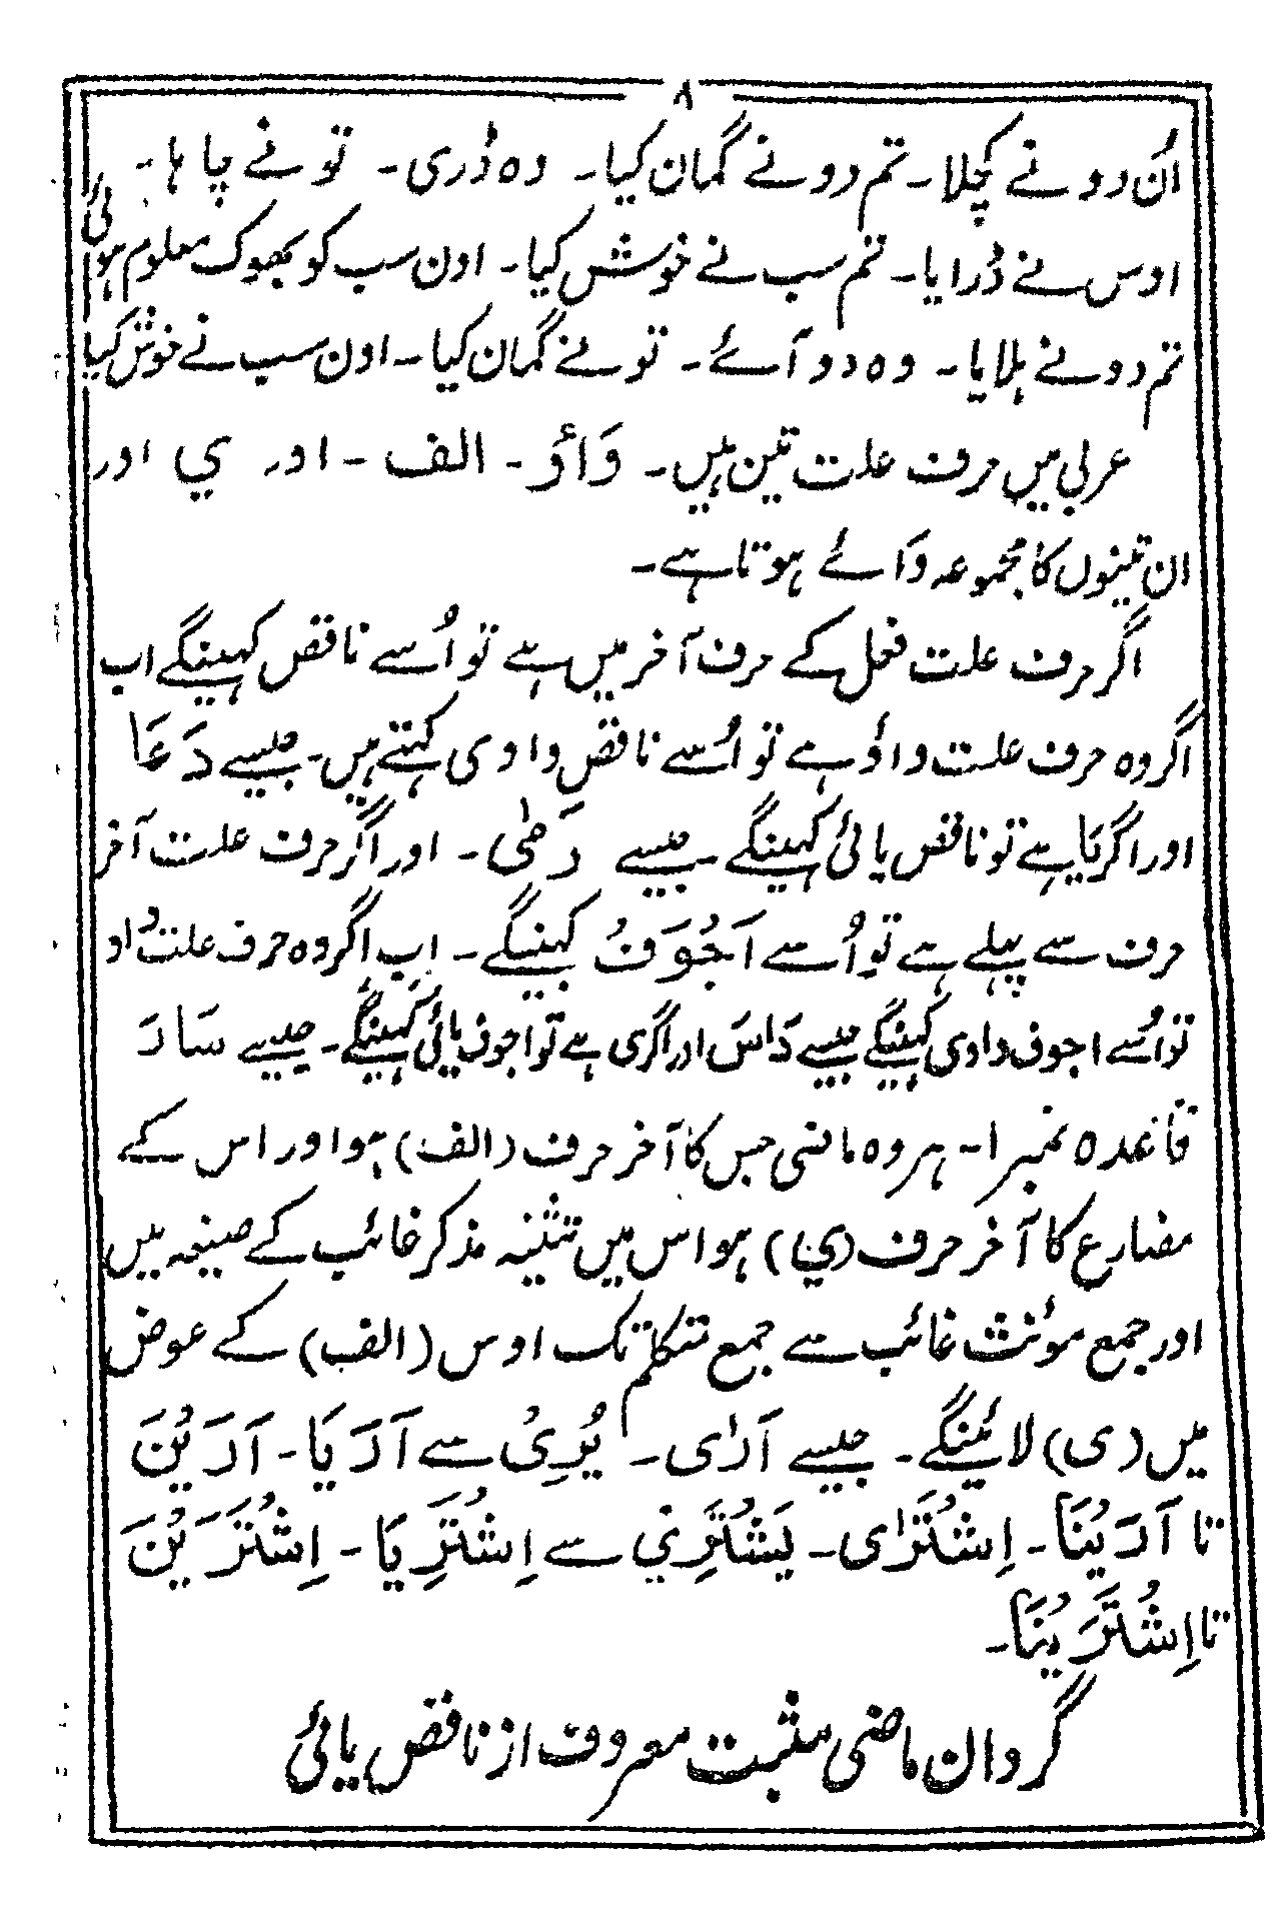 ۸
اُن دو نے کچلا۔ تم دو نے گمان کیا۔ وہ ڈری۔ تو نے چاہا۔
اوس نے ڈرایا۔ تم سب نے خوش کیا۔ اون سب کو بھوک معلوم ہوئی
تم دو نے ہلایا۔ وہ دو آئے۔ تو نے گمان کیا۔ اون سب نے خوش کیا
عربی میں حرف علت تین ہیں۔ وَاؤ۔ الف۔ اور ي اور
ان تینوں کا مجموعہ وَائے ہوتا ہے۔
اگر حرف علت فعل کے حرف آخر میں ہے تو اُسے ناقص کہینگے اب
اگر وہ حرف علت واؤ ہے تو اُسے ناقصِ واوی کہتے ہیں۔ جیسے دَعَا
اور اگر یَا ہے تو ناقص یائی کہینگے۔ جیسے رَمیٰ۔ اور اگر حرف علت آخر
حرف سے پہلے ہے تو اُسے اَجْوَفْ کہینگے۔ اب اگر وہ حرف علت واو
تو اُسے اجوف واوی کہینگے جیسے دَاسَ اور اگر ی ہے تو اجوف یائی کہینگے۔ جیسے سَارَ
قاعدہ نمبر ۱۔ ہر وہ ماضی جس کا آخر حرف (الف) ہو اور اس کے
مضارع کا آخر حرف (ي) ہو اس میں تثنیہ مذکر غائب کے صیغہ میں
اور جمع مونث غائب سے جمع متکلم تک اوس (الف) کے عوض
میں (ی) لائینگے۔ جیسے اَرٰی۔ یُرِیْ سے اَرَیَا۔ اَرَیْنَ
تا اَرَیْنَا۔ اِشْتَرٰی۔ یَشْتَرِيْ سے اِشْتَرِیَا۔ اِشْتَرَیْنَ
تا اِشْتَرَیْنَا۔
گردان ماضی مثبت معروف از ناقص یائی